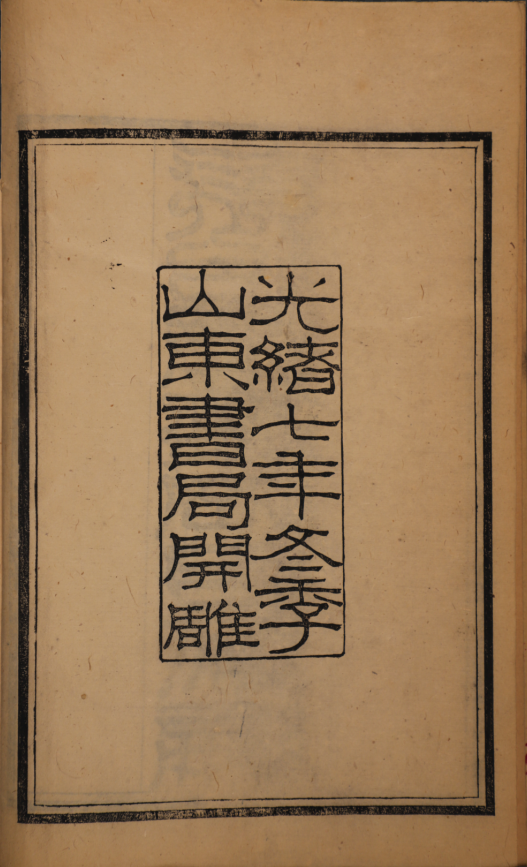 光緒七年冬季
山東書局開雕